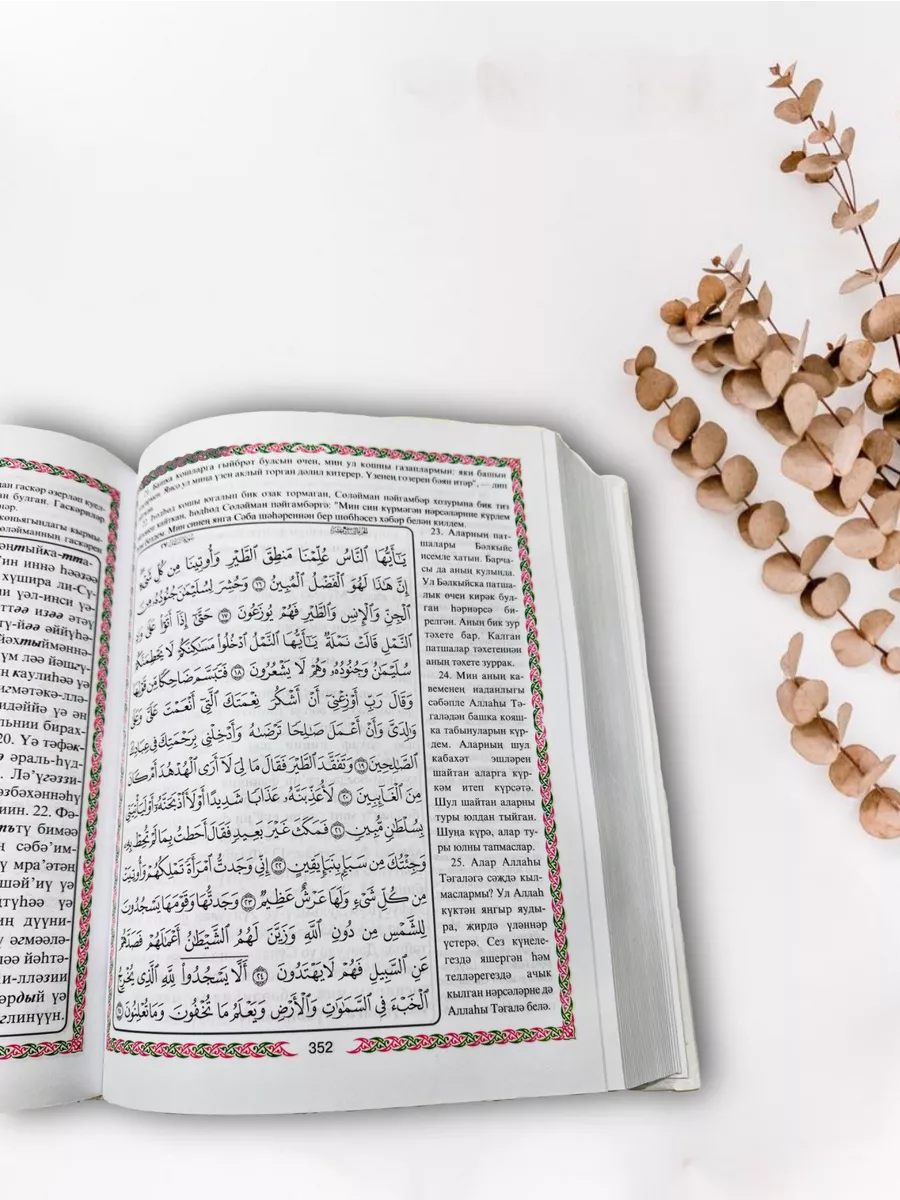 гаскәр әзерләп куел-
ан булган. Гаскәриләр
коньягындагы кырмы-
өләйманның гаскәрен
әңтыйка-тта-
'ин иннә һәәзәә
хушира ли-Сү-
и үәл-инси үә-
ттәә изәә әтәү
тү-йәә әййүһә-
йәхтыймәннә-
үм ләә йәшг-
ң каулиһәә үә
гмәтәкә-ллә-
идәййә үә ән
льнии бирах-
20. Үә тәфәк-
ә әраль-һүд-
. Лә'үгәззи-
әзбәхәннәһү
иин. 22. Фә-
тътү бимәә
сәбә'им-
ү мра'әтән
шәй'иү үә
түһәә үә
иң дүүни-
ү әгмәәлә-
ләә йәһтә-
и-лләзии
әрдый үә
глинүүн.
21. Башка кошларга гыйбрәт булсын өчен, мин ул кошны газаплармын: яки башын
Яисә ул миңа үзен аклый торган дәлил китерер. Үзенең гозерен бәян итәр", — дип
22. Һөдһөд кошы югалып бик озак тормаган, Сөләйман пәйгамбәр хозурына бик тиз
кайткан. Һөдһөд Сөләйман пәйгамбәргә: "Мин син күрмәгән нәрсәләрне күрдем
белдем. Мин сиңең янга Сәба шәһәреннән бер шөбһәсез хәбәр белән килдем.
يَـٰٓأَيُّهَا ٱلنَّاسُ عُلِّمْنَا مَنطِقَ ٱلطَّيْرِ وَأُوتِينَا مِن كُلِّ شَىْءٍ
إِنَّ هَـٰذَا لَهُوَ ٱلْفَضْلُ ٱلْمُبِينُ ١٦ وَحُشِرَ لِسُلَيْمَـٰنَ جُنُودُهُۥ مِنَ
ٱلْجِنِّ وَٱلْإِنسِ وَٱلطَّيْرِ فَهُمْ يُوزَعُونَ ١٧ حَتَّىٰٓ إِذَآ أَتَوْا۟ عَلَىٰ وَادِ
ٱلنَّمْلِ قَالَتْ نَمْلَةٌ يَـٰٓأَيُّهَا ٱلنَّمْلُ ٱدْخُلُوا۟ مَسَـٰكِنَكُمْ لَا يَحْطِمَنَّكُمْ
سُلَيْمَـٰنُ وَجُنُودُهُۥ وَهُمْ لَا يَشْعُرُونَ ١٨ فَتَبَسَّمَ ضَاحِكًا مِّن قَوْلِهَا
وَقَالَ رَبِّ أَوْزِعْنِىٓ أَنْ أَشْكُرَ نِعْمَتَكَ ٱلَّتِىٓ أَنْعَمْتَ عَلَىَّ وَعَلَىٰ
وَٰلِدَىَّ وَأَنْ أَعْمَلَ صَـٰلِحًا تَرْضَىٰهُ وَأَدْخِلْنِى بِرَحْمَتِكَ فِى عِبَادِكَ
ٱلصَّـٰلِحِينَ ١٩ وَتَفَقَّدَ ٱلطَّيْرَ فَقَالَ مَا لِىَ لَآ أَرَى ٱلْهُدْهُدَ أَمْ كَانَ
مِنَ ٱلْغَآئِبِينَ ٢٠ لَأُعَذِّبَنَّهُۥ عَذَابًا شَدِيدًا أَوْ لَأَا۟ذْبَحَنَّهُۥٓ أَوْ لَيَأْتِيَنِّى
بِسُلْطَـٰنٍ مُّبِينٍ ٢١ فَمَكَثَ غَيْرَ بَعِيدٍ فَقَالَ أَحَطتُ بِمَا لَمْ تُحِطْ بِهِۦ
وَجِئْتُكَ مِن سَبَإٍۭ بِنَبَإٍ يَقِينٍ ٢٢ إِنِّى وَجَدتُّ ٱمْرَأَةً تَمْلِكُهُمْ وَأُوتِيَتْ
مِن كُلِّ شَىْءٍ وَلَهَا عَرْشٌ عَظِيمٌ ٢٣ وَجَدتُّهَا وَقَوْمَهَا يَسْجُدُونَ
لِلشَّمْسِ مِن دُونِ ٱللَّهِ وَزَيَّنَ لَهُمُ ٱلشَّيْطَـٰنُ أَعْمَـٰلَهُمْ فَصَدَّهُمْ
عَنِ ٱلسَّبِيلِ فَهُمْ لَا يَهْتَدُونَ ٢٤ أَلَّا يَسْجُدُوا۟ لِلَّهِ ٱلَّذِى يُخْرِجُ
ٱلْخَبْءَ فِى ٱلسَّمَـٰوَٰتِ وَٱلْأَرْضِ وَيَعْلَمُ مَا تُخْفُونَ وَمَا تُعْلِنُونَ ٢٥
23. Аларның пат-
шалары Бәлкыйс
исемле хатын. Барча-
сы да аның кулында.
Ул Бәлкыйска патша-
лык өчен кирәк бул-
ган һәрнәрсә би-
релгән. Аның бик зур
тәхете бар. Калган
патшалар тәхетеннән
аның тәхете зуррак.
24. Мин аның ка-
веменең наданлыгы
сәбәпле Аллаһы Тә-
галәдән башка кояш-
ка табынуларын күр-
дем. Аларның шул
кабахәт эшләрен
шайтан аларга күр-
кәм итеп күрсәтә.
Шул шайтан аларны
туры юлдан тыйган.
Шуңа күрә, алар ту-
ры юлны тапмаслар.
25. Алар Аллаһы
Тәгаләгә сәҗдә кыл-
маслармы? Ул Аллаһ
күктән яңгыр яуды-
ра, җирдә үләннәр
үстерә. Сез күңеле-
гездә яшергән һәм
телләрегездә ачык
кылган нәрсәләрне дә
Аллаһы Тәгалә белә.
352